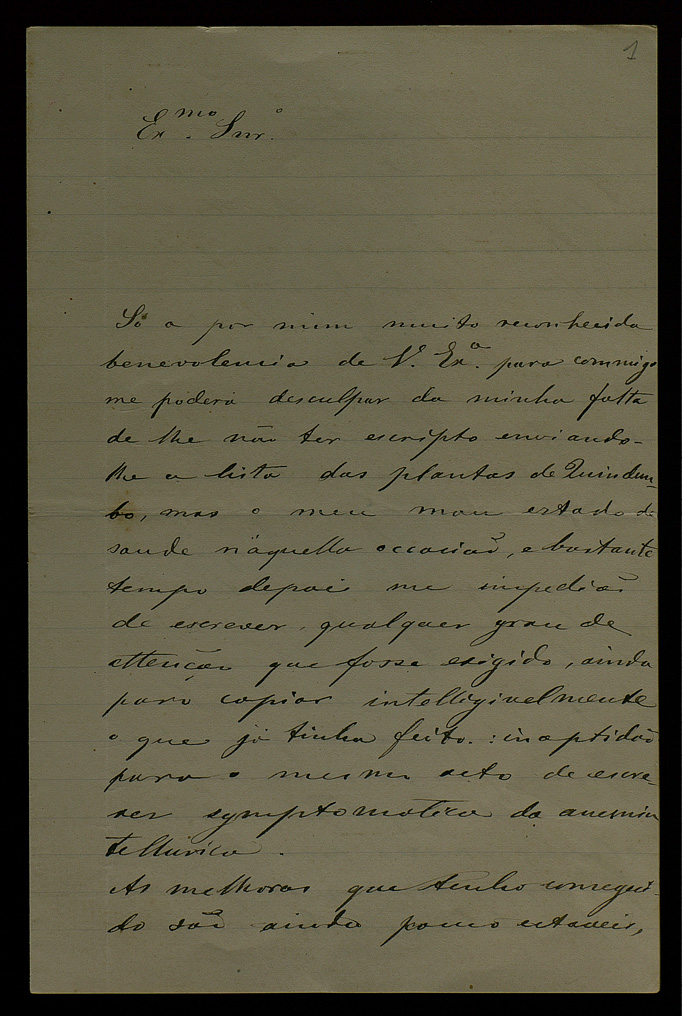 1
Exmo. Snr.º
Só a por mim muito reconhecida
benevolencia de V.ª Ex.ª para commigo
me poderá desculpar da minha falta
de lhe não ter escripto enviando-
lhe a lista das plantas de Quindum-
bo, mas o meu mau estado de
saude n'aquella occasião, e bastante
tempo depois me impedião
de escrever, qualquer grau de
attenção que fosse exigido, ainda
para copiar intelligivelmente
o que já tinha feito.: inaptidão
para o mesmo acto de escre-
ver symptomatica da anemia
tellurica.
As melhoras que tenho consegui-
do são ainda pouco estaveis,